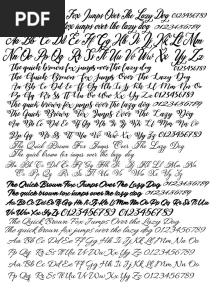 PDF
Fox Jumps Over The Lazy Dog 0123456789
fox jumps over the lazy dog 0123456789
Aa Bb Cc Dd Ee Ff Gg Hh Ii Jj Kk Ll Mm
Nn Oo Pp Qq Rr Ss Tt Uu Vv Ww Xx Yy Zz
The quick brown fox jumps over the lazy dog 0123456789
The Quick Brown Fox Jumps Over The Lazy Dog
Aa Bb Cc Dd Ee Ff Gg Hh Ii Jj Kk Ll Mm Nn Oo
Pp Qq Rr Ss Tt Uu Vv Ww Xx Yy Zz 0123456789
The quick brown fox jumps over the lazy dog 0123456789
The Quick Brown Fox Jumps Over The Lazy Dog
Aa Bb Cc Dd Ee Ff Gg Hh Ii Jj Kk Ll Mm Nn Oo
Pp Qq Rr Ss Tt Uu Vv Ww Xx Yy Zz 0123456789
The Quick Brown Fox Jumps Over The Lazy Dog
The quick brown fox jumps over the lazy dog
Aa Bb Cc Dd Ee Ff Gg Hh Ii Jj Kk Ll Mm Nn
Oo Pp Qq Rr Ss Tt Uu Vv Ww Xx Yy Zz
The Quick Brown Fox Jumps Over The Lazy Dog 0123456789
The quick brown fox jumps over the lazy dog 0123456789
Aa Bb Cc Dd Ee Ff Gg Hh Ii Jj Kk Ll Mm Nn Oo Pp Qq Rr Ss Tt
Uu Vv Ww Xx Yy Zz 0123456789 0123456789
The Quick Brown Fox Jumps Over The Lazy Dog
The quick brown fox jumps over the lazy dog 0123456789
Aa Bb Cc Dd Ee Ff Gg Hh Ii Jj Kk Ll Mm Nn Oo
Pp Qq Rr Ss Tt Uu Vv Ww Xx Yy Zz 0123456789
Aa Bb Cc Dd Ee Ff Gg Hh Ii Jj Kk Ll Mm Nn Oo
Pp Qq Rr Ss Tt Uu Vv Ww Xx Yy Zz 0123456789